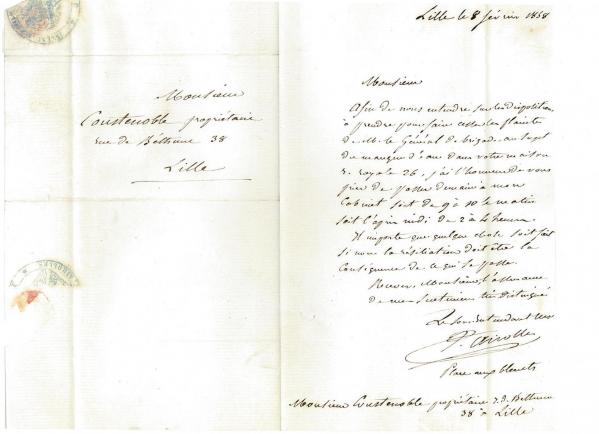 Monsieur
Coustenoble propriétaire
rue de Béthune 38
Lille
Lille le 8 février 1858
Monsieur
Afin de nous entendre sur les dispositions
à prendre pour faire cesser les plaintes
de M. le Général de brigade au sujet
du manque d'eau dans votre maison
r. royale 26, j'ai l'honneur de vous
prier de passer demain à mon
Cabinet soit de 9 à 10 le matin
soit l'après midi de 2 à 4 heures.
Il importe que quelque chose soit fait
si non la résiliation doit être la
Conséquence de ce qui se passe.
Recevez, Monsieur, l'assurance
de mes sentiments très distingués
Le Sous Intendant
Place aux
Monsieur Coustenoble propriétaire r. d. Béthune
38 à Lille